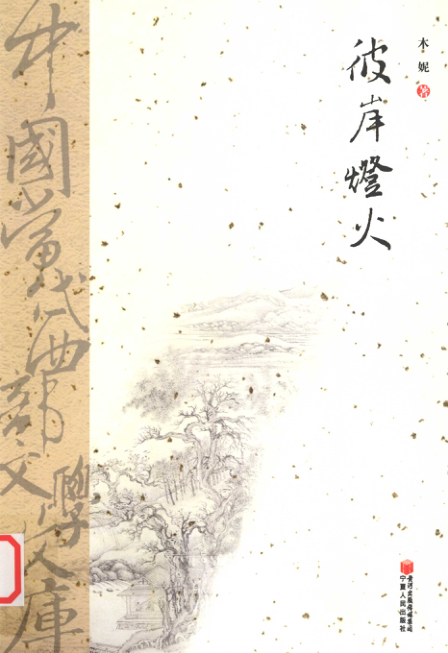 彼岸燈火
木妮
著
中國當代西部文學文庫
黄河出版传媒集团
宁夏人民出版社